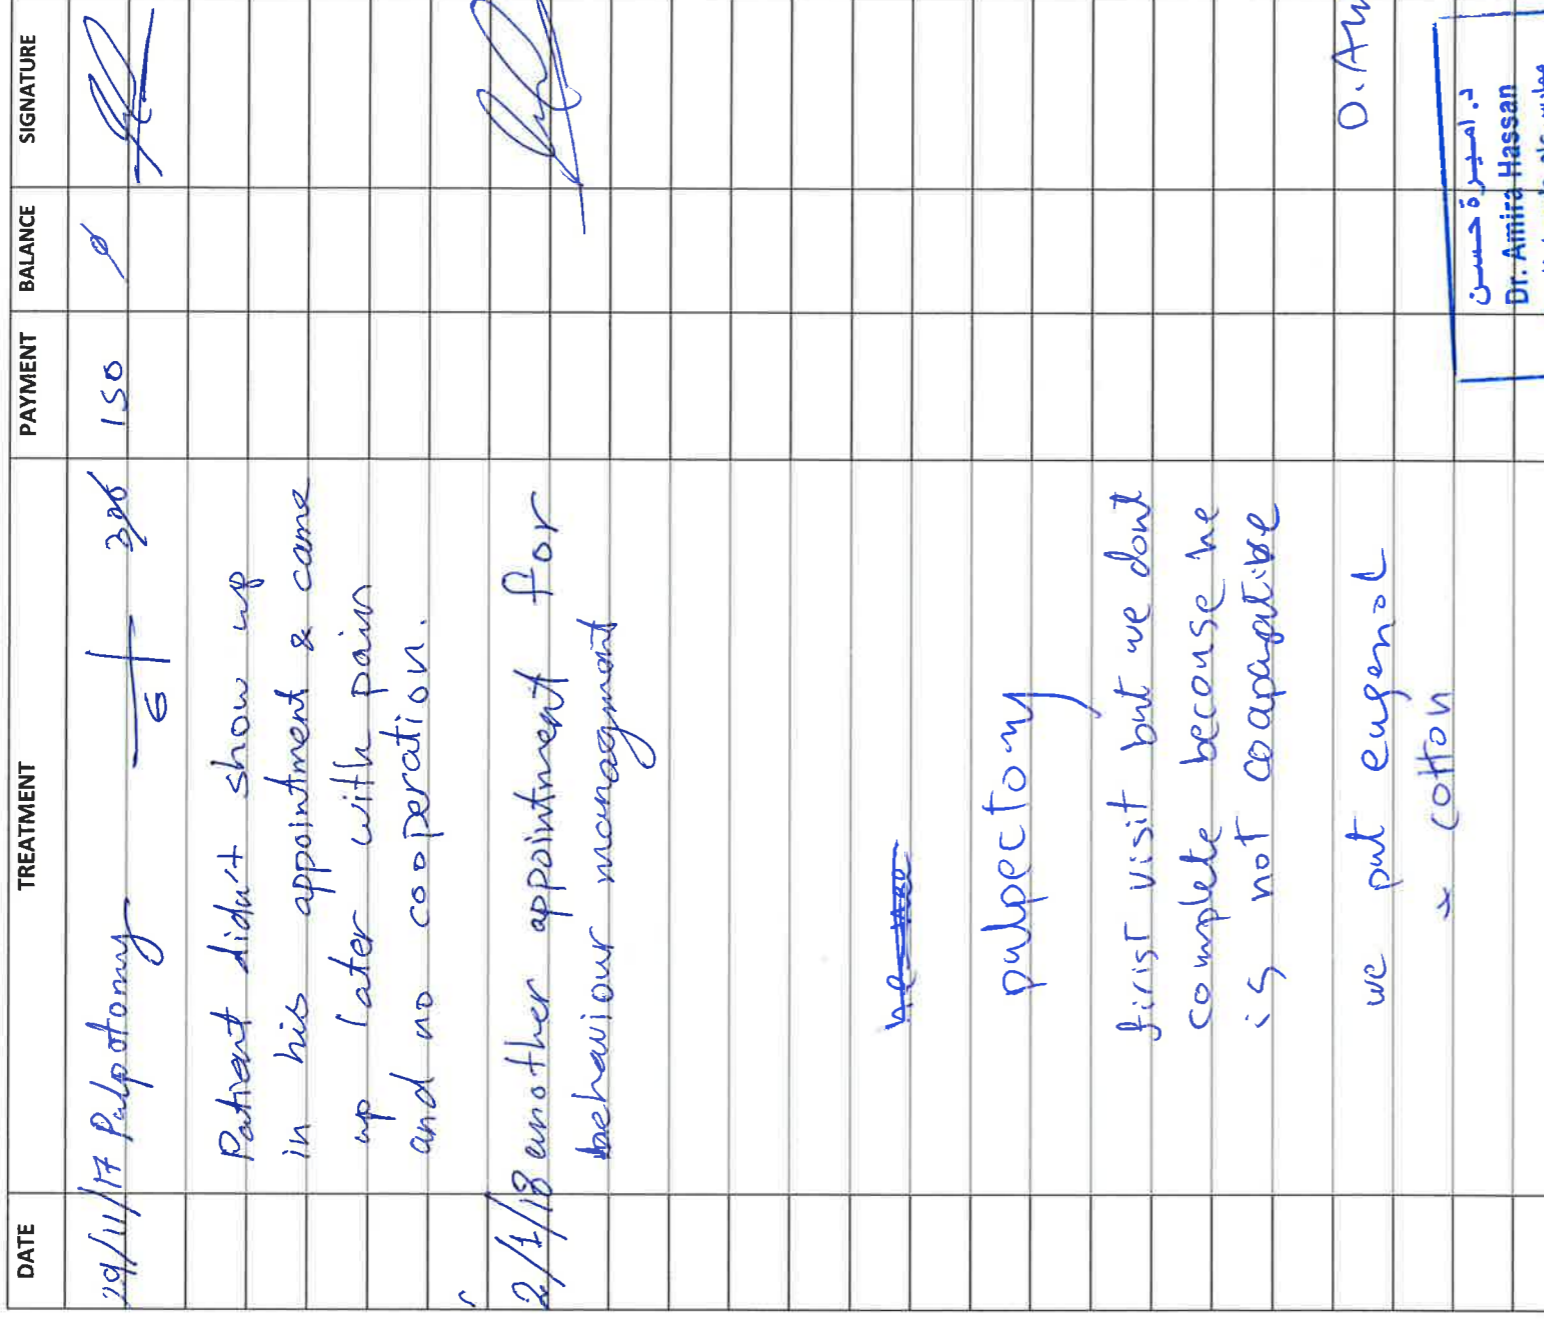 DATE TREATMENT PAYMENT BALANCE SIGNATURE
29/11/17 Pulpotomy 6 150 ø
Patient didn't show up
in his appointment & came
up later with pain
and no cooperation.
2/1/18 another appointment for
behaviour managment
pulpectomy
first visit but we dont
complete becouse he
is not coapaptive
we put eugenol D. Am
x cotton
د. اميرة حسن
Dr. Amira Hassan